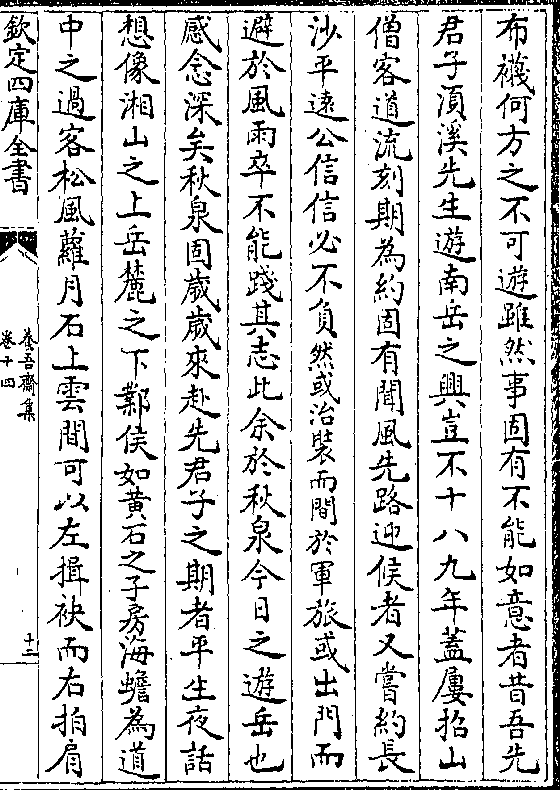 布襪何方之不可遊雖然事固有不能如意者昔吾先
君子須溪先生遊南岳之興豈不十八九年蓋屢招山
僧客道流刻期為約固有聞風先路迎候者又嘗約長
沙平遠公信信必不負然或治裝而間於軍旅或出門而
避於風雨卒不能踐其志此余於秋泉今日之遊岳也
感念深矣秋泉固歲歲來赴先君子之期者平生夜話
想像湘山之上岳麓之下鄴侯如黄石之子房海蟾為道
中之過客松風蘿月石上雲間可以左揖袂而右拍肩
欽定四庫全書
養吾齋集
卷十四
十二